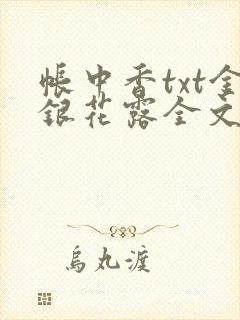 帳中香txt金
銀花露全文
烏丸渡